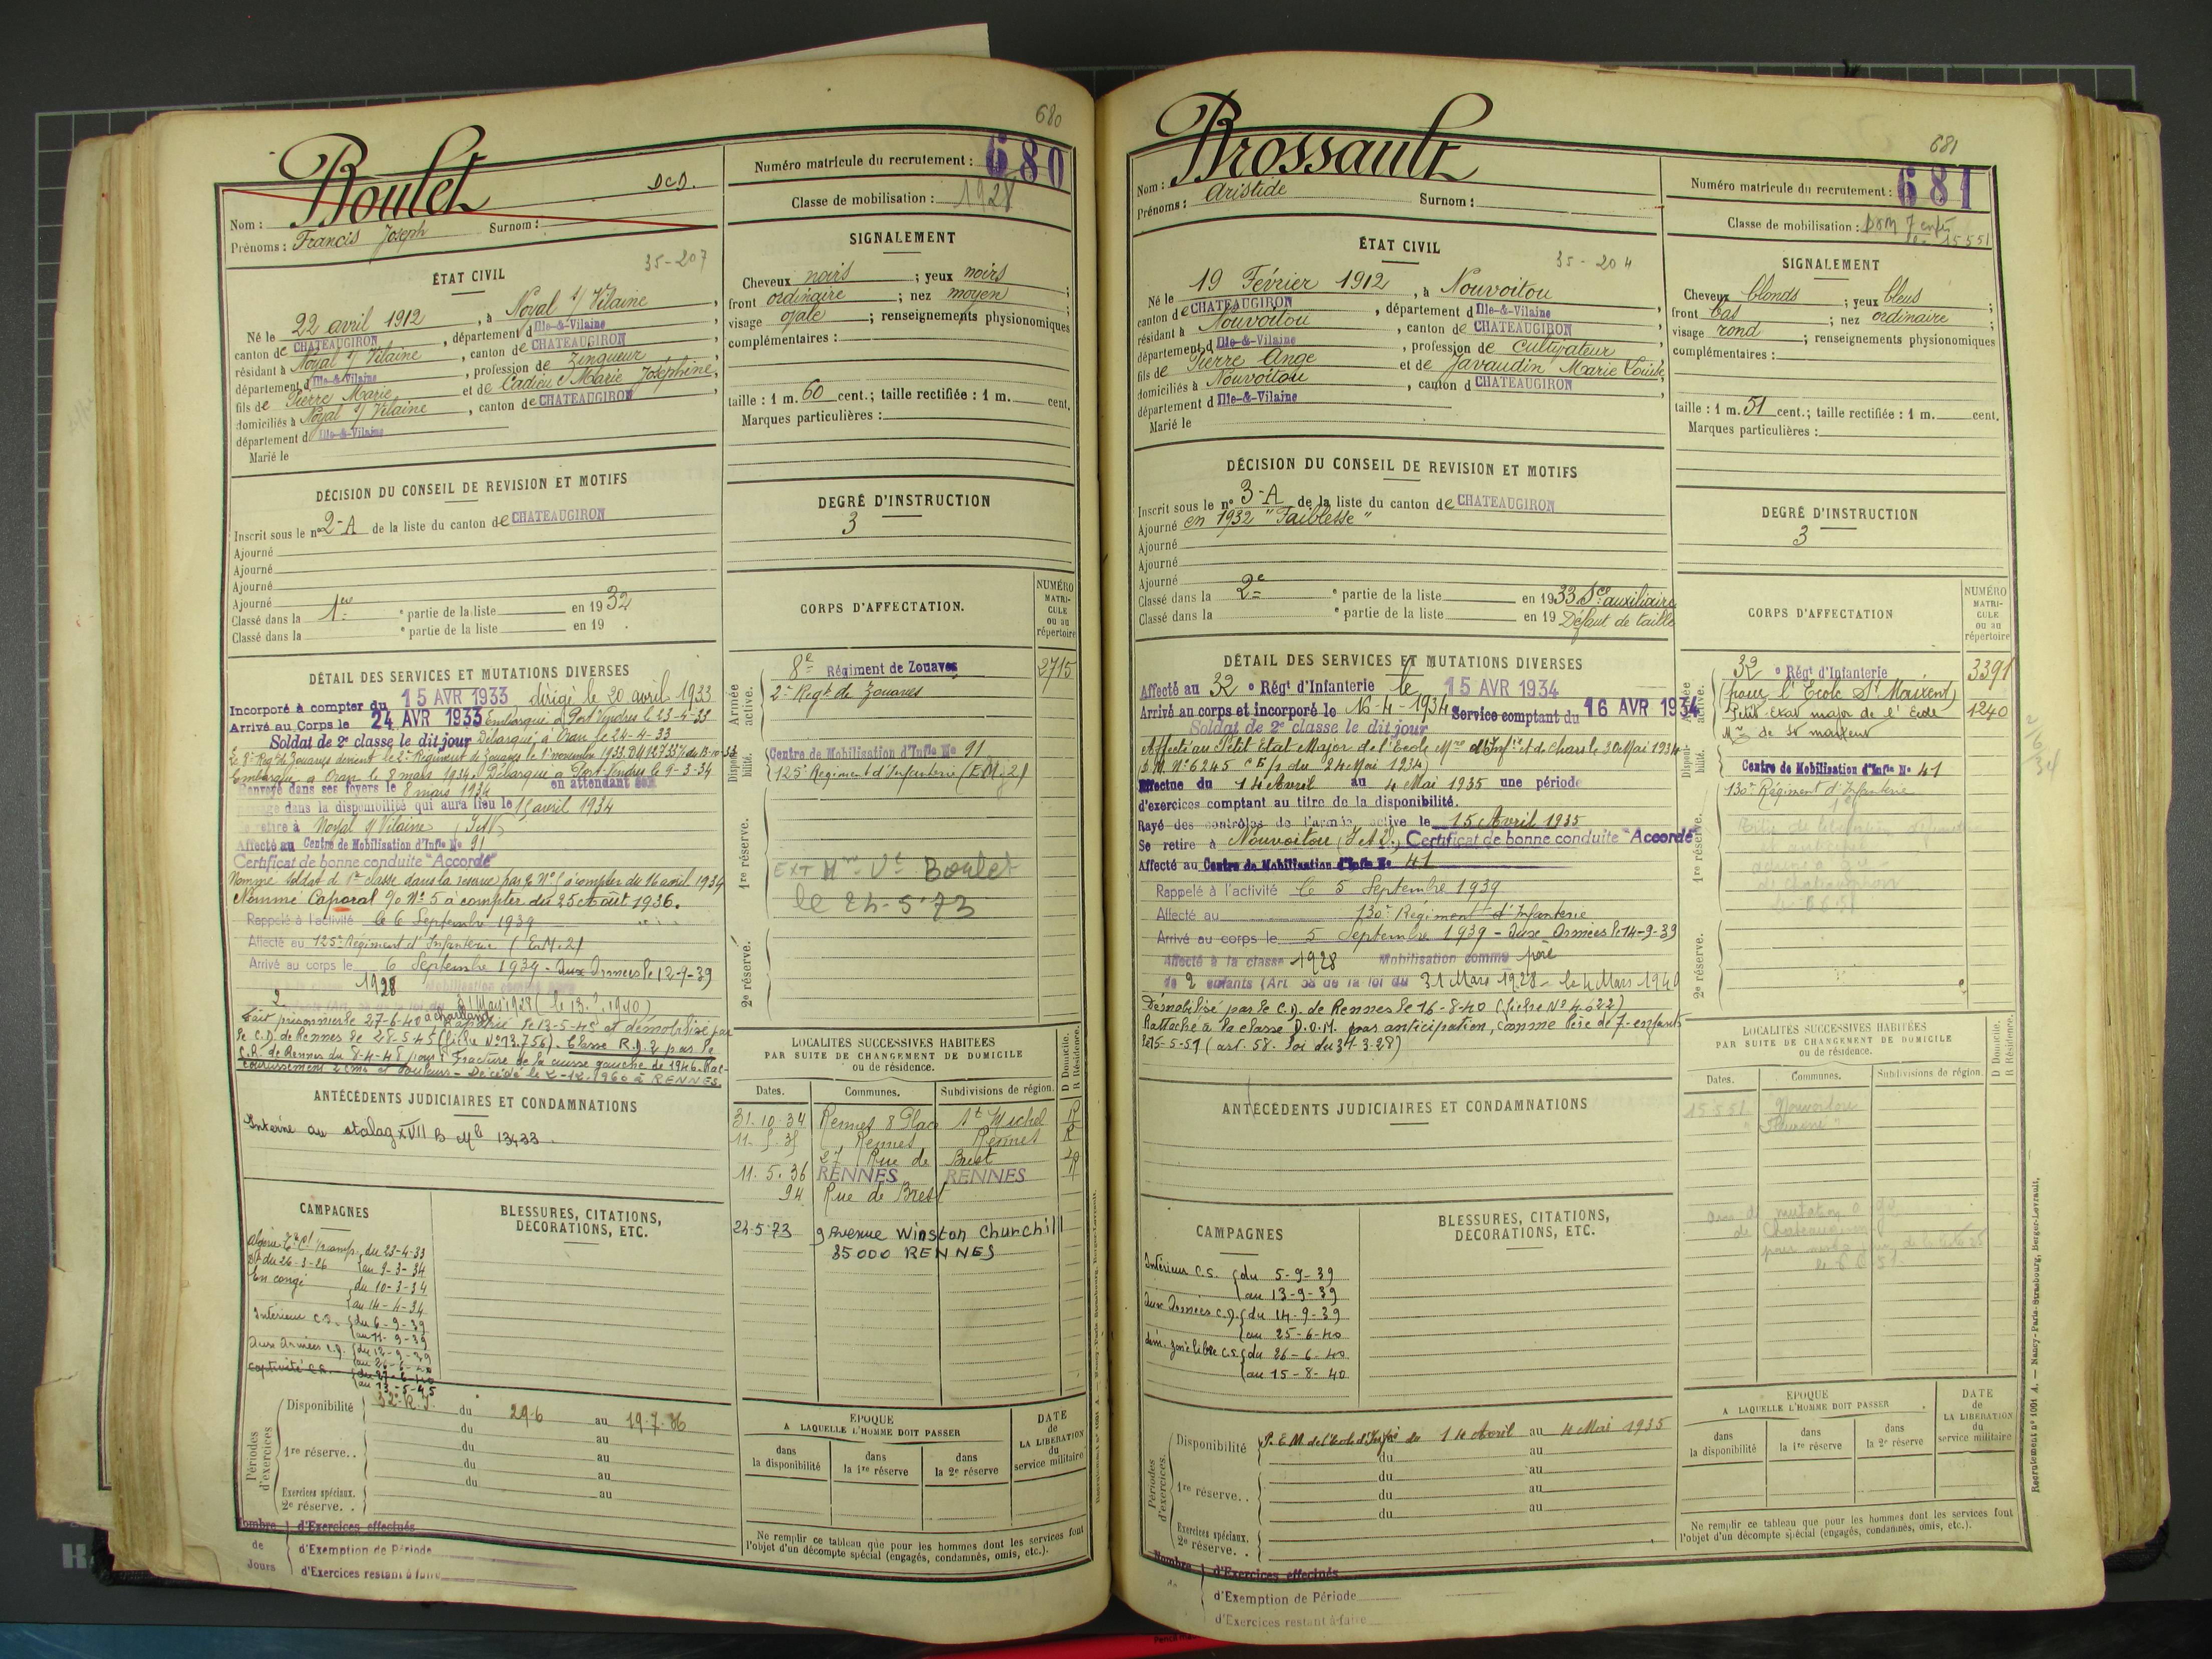 680
Boulet
DCD.
Nom :
Prénoms : Francis Joseph Surnom :
Numéro matricule du recrutement : 680
Classe de mobilisation : 1928
ÉTAT CIVIL
35-207
Né le 22 avril 1912, à Noyal s/ Vilaine,
canton de CHATEAUGIRON, département d Ille-&-Vilaine,
résidant à Noyal s/ Vilaine, canton de CHATEAUGIRON,
département d Ille-&-Vilaine, profession de Zingueur,
fils de Pierre Marie et de Cadieu Marie Joséphine,
domiciliés à Noyal s/ Vilaine, canton de CHATEAUGIRON,
département d Ille-&-Vilaine
Marié le
SIGNALEMENT
Cheveux noirs ; yeux noirs ;
front ordinaire ; nez moyen ;
visage ovale ; renseignements physionomiques
complémentaires :
taille : 1 m. 60 cent. ; taille rectifiée : 1 m. cent.
Marques particulières :
DÉCISION DU CONSEIL DE REVISION ET MOTIFS
Inscrit sous le n° 2-A de la liste du canton de CHATEAUGIRON
Ajourné
Ajourné
Ajourné
Ajourné
Classé dans la 1ère e partie de la liste en 1932
Classé dans la e partie de la liste en 19 .
DEGRÉ D'INSTRUCTION
3
DÉTAIL DES SERVICES ET MUTATIONS DIVERSES
Incorporé à compter du 15 AVR 1933 dirigé le 20 avril 1933
Arrivé au Corps le 24 AVR 1933 Embarqué à Port Vendres le 23-4-33
Soldat de 2e classe le dit jour Débarqué à Oran le 24-4-33
Le 8e Regt de Zouaves devient le 2e Régiment de Zouaves le 1er novembre 1933.
Embarqué à Oran le 8 mars 1934. Débarqué à Port-Vendres le 9-3-34
Renvoyé dans ses foyers le 8 mars 1934 en attendant son
passage dans la disponibilité qui aura lieu le 15 avril 1934
Se retire à Noyal s/ Vilaine (I&V)
Affecté au Centre de Mobilisation d'Infie No 91
Certificat de bonne conduite "Accordé"
Nommé soldat de 1re classe dans la réserve à compter du 16 avril 1934
Nommé Caporal %o No 5 à compter du 25 Août 1936.
Rappelé à l'activité le 6 Septembre 1939
Affecté au 125e Régiment d'Infanterie (E.M.2)
Arrivé au corps le 6 Septembre 1939 - Aux Armées le 12-9-39
1928
Fait prisonnier le 27-6-40 Rapatrié le 13-5-45 et démobilisé par
le C.D. de Rennes le 28-5-45 (fiche No 13.756). Classé R.D.2 par la
C.R. de Rennes du 8-4-48 pour : Fracture de la cuisse gauche de 1946. Rac-
courcissement 2 cms et douleurs - Décédé le 2-12-1960 à RENNES.
CORPS D'AFFECTATION.
NUMÉRO MATRICULE ou au répertoire
Armée active.
8e Régiment de Zouaves 2715
2e Regt de Zouaves
Disponibilité.
Centre de Mobilisation d'Infie No 91
125e Régiment d'Infanterie (E.M.2)
1re réserve.
EXT Boulet
le 24-5-73
2e réserve.
ANTÉCÉDENTS JUDICIAIRES ET CONDAMNATIONS
Interné au stalag XVII B Mle 13433
LOCALITÉS SUCCESSIVES HABITÉES
PAR SUITE DE CHANGEMENT DE DOMICILE
ou de résidence.
D Domicile. R Résidence.
Dates. Communes. Subdivisions de région.
31.10.34 Rennes 8 Place St Michel R
11-5-35 Rennes Rennes R
27 Rue de Brest
11.5.36 RENNES RENNES R
94 Rue de Brest
24-5-73 9 Avenue Winston Churchill
35000 RENNES
CAMPAGNES
du 23-4-33
au 9-3-34
En congé du 10-3-34
au 14-4-34
Intérieur C.S. du 6-9-39
au 11-9-39
Aux Armées C.D. du 12-9-39
au 26-6-40
Captivité C.S. du 27-6-40
au 13-5-45
BLESSURES, CITATIONS,
DÉCORATIONS, ETC.
Périodes d'exercices
Disponibilité 32e R.I. du 29-6 au 19-7-36
du au
1re réserve. . du au
du au
Exercices spéciaux. du au
2e réserve. .
Nombre de Jours
d'Exercices effectués
d'Exemption de Période
d'Exercices restant à faire
EPOQUE
A LAQUELLE L'HOMME DOIT PASSER
dans la disponibilité
dans la 1re réserve
dans la 2e réserve
DATE de LA LIBERATION du service militaire
Ne remplir ce tableau que pour les hommes dont les services font
l'objet d'un décompte spécial (engagés, condamnés, omis, etc.).
681
Nom : Brossault
Prénoms : Aristide Surnom :
Numéro matricule du recrutement : 681
Classe de mobilisation : DOM 7 enfts
15 5 51
ÉTAT CIVIL
35-204
Né le 19 Février 1912, à Nouvoitou
canton de CHATEAUGIRON, département d Ille-&-Vilaine,
résidant à Nouvoitou, canton de CHATEAUGIRON,
département d Ille-&-Vilaine, profession de Cultivateur,
fils de Pierre Ange et de Javaudin Marie Louise,
domiciliés à Nouvoitou, canton d CHATEAUGIRON
département d Ille-&-Vilaine
Marié le
SIGNALEMENT
Cheveux blonds ; yeux bleus ;
front bas ; nez ordinaire ;
visage rond ; renseignements physionomiques
complémentaires :
taille : 1 m. 51 cent. ; taille rectifiée : 1 m. cent.
Marques particulières :
DÉCISION DU CONSEIL DE REVISION ET MOTIFS
Inscrit sous le n° 3-A de la liste du canton de CHATEAUGIRON
Ajourné en 1932 "Faiblesse"
Ajourné
Ajourné
Ajourné
Classé dans la 2e e partie de la liste en 1933 Sce auxiliaire
Classé dans la e partie de la liste en 19 Défaut de taille
DEGRÉ D'INSTRUCTION
3
DÉTAIL DES SERVICES ET MUTATIONS DIVERSES
Affecté au 32 e Régt d'Infanterie le 15 AVR 1934
Arrivé au corps et incorporé le 16-4-1934 Service comptant du 16 AVR 1934
Soldat de 2e classe le dit jour
Affecté au Petit Etat Major de l'Ecole Mre d'Infie et de chars le 2 Mai 1934
D.M. No 6245 du 24 Mai 1934)
Effectue du 14 Avril au 4 Mai 1935 une période
d'exercices comptant au titre de la disponibilité.
Rayé des contrôles de l'armée active le 15 Avril 1935
Se retire à Nouvoitou (I & V), Certificat de bonne conduite "Accordé"
Affecté au Centre de Mobilisation d'Infie No 41
Rappelé à l'activité le 5 Septembre 1939
Affecté au 130e Régiment d'Infanterie
Arrivé au corps le 5 Septembre 1939 - Aux Armées le 14-9-39
Affecté à la classe 1928 Mobilisation comme père
de 2 enfants (Art 58 de la loi du 31 Mars 1928 - le 4 Mars 1940
Démobilisé par le C.D. de Rennes le 16-8-40 (fiche No 4622)
Rattaché à la classe D.O.M. par anticipation, comme Père de 7 enfants
le 15-5-51 (art. 58. loi du 31-3-28)
CORPS D'AFFECTATION
NUMÉRO MATRICULE ou au répertoire
Armée active.
32 e Régt d'Infanterie 3391
(pour l'Ecole St Maixent)
Petit Etat major de l'Ecole 1240
Mre de St maixent
2/6/34
Disponibilité.
Centre de Mobilisation d'Infie No 41
130e Régiment d'Infanterie
1re réserve.
2e réserve.
ANTÉCÉDENTS JUDICIAIRES ET CONDAMNATIONS
LOCALITÉS SUCCESSIVES HABITÉES
PAR SUITE DE CHANGEMENT DE DOMICILE
ou de résidence.
D Domicile. R Résidence.
Dates. Communes. Subdivisions de région.
15 5 51 Nouvoitou
CAMPAGNES
Intérieur C.S. du 5-9-39
au 13-9-39
Aux Armées C.D. du 14-9-39
au 25-6-40
dém. zone libre C.S. du 26-6-40
au 15-8-40
BLESSURES, CITATIONS,
DÉCORATIONS, ETC.
Périodes d'exercices.
Disponibilité P.E.M de l'Ecole d'Infie du 14 Avril au 4 Mai 1935
du au
1re réserve. . du au
du au
Exercices spéciaux. du au
2e réserve. .
Nombre de
d'Exercices effectués
d'Exemption de Période
d'Exercices restant à faire
EPOQUE
A LAQUELLE L'HOMME DOIT PASSER
dans la disponibilité
dans la 1re réserve
dans la 2e réserve
DATE de LA LIBERATION du service militaire
Ne remplir ce tableau que pour les hommes dont les services font
l'objet d'un décompte spécial (engagés, condamnés, omis, etc.).
Recrutement n° 1001 A. — Nancy-Paris-Strasbourg, Berger-Levrault.